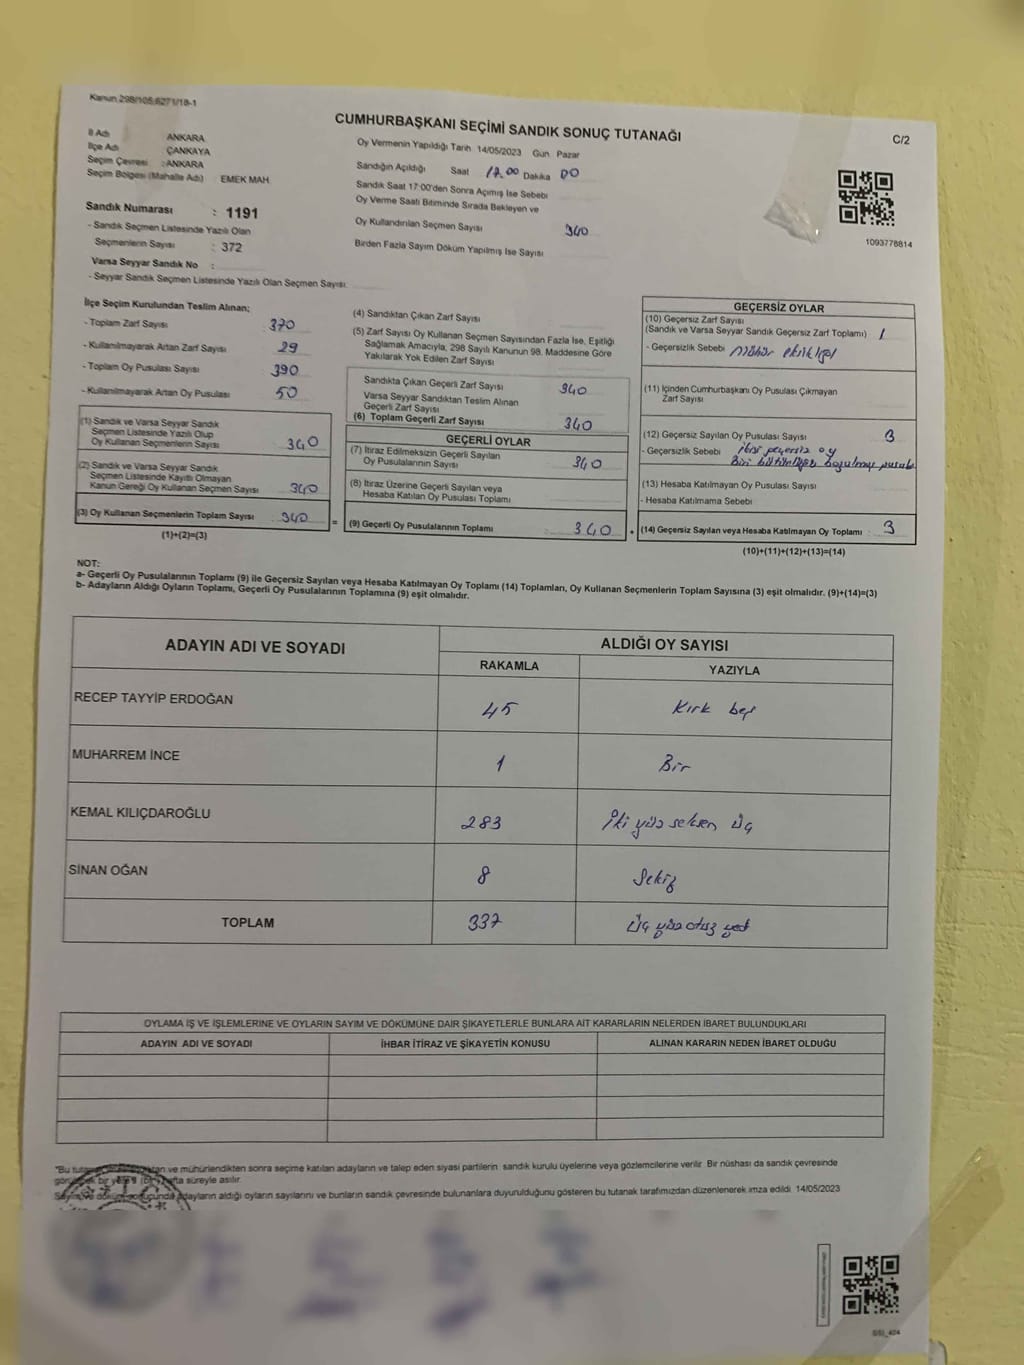 Kanun 298/105,6271/18-1
CUMHURBAŞKANI SEÇİMİ SANDIK SONUÇ TUTANAĞI
C/2
İl Adı ANKARA
İlçe Adı ÇANKAYA
Seçim Çevresi : ANKARA
Seçim Bölgesi (Mahalle Adı) : EMEK MAH
Sandık Numarası : 1191
- Sandık Seçmen Listesinde Yazılı Olan
Seçmenlerin Sayısı : 372
Varsa Seyyar Sandık No :
- Seyyar Sandık Seçmen Listesinde Yazılı Olan Seçmen Sayısı:
Oy Vermenin Yapıldığı Tarih 14/05/2023 Gün Pazar
Sandığın Açıldığı Saat 17.00 Dakika 00
Sandık Saat 17:00'den Sonra Açımış İse Sebebi
Oy Verme Saati Bitiminde Sırada Bekleyen ve
Oy Kullandırılan Seçmen Sayısı 340
Birden Fazla Sayım Döküm Yapılmış İse Sayısı
1093778814
İlçe Seçim Kurulundan Teslim Alınan;
- Toplam Zarf Sayısı 370
- Kullanılmayarak Artan Zarf Sayısı 29
- Toplam Oy Pusulası Sayısı 390
- Kullanılmayarak Artan Oy Pusulası 50
(1) Sandık ve Varsa Seyyar Sandık
Seçmen Listesinde Yazılı Olup
Oy Kullanan Seçmenlerin Sayısı 340
(2) Sandık ve Varsa Seyyar Sandık
Seçmen Listesinde Kayıtlı Olmayan
Kanun Gereği Oy Kullanan Seçmen Sayısı 340
(3) Oy Kullanan Seçmenlerin Toplam Sayısı 340
(1)+(2)=(3)
(4) Sandıktan Çıkan Zarf Sayısı
(5) Zarf Sayısı Oy Kullanan Seçmen Sayısından Fazla İse, Eşitliği
Sağlamak Amacıyla, 298 Sayılı Kanunun 98. Maddesine Göre
Yakılarak Yok Edilen Zarf Sayısı
Sandıkta Çıkan Geçerli Zarf Sayısı 340
Varsa Seyyar Sandıktan Teslim Alınan
Geçerli Zarf Sayısı
(6) Toplam Geçerli Zarf Sayısı 340
GEÇERLİ OYLAR
(7) İtiraz Edilmeksizin Geçerli Sayılan
Oy Pusulalarının Sayısı 340
(8) İtiraz Üzerine Geçerli Sayılan veya
Hesaba Katılan Oy Pusulası Toplamı
= (9) Geçerli Oy Pusulalarının Toplamı : 340
GEÇERSİZ OYLAR
(10) Geçersiz Zarf Sayısı
(Sandık ve Varsa Seyyar Sandık Geçersiz Zarf Toplamı) 1
- Geçersizlik Sebebi mühür eksikliği
(11) İçinden Cumhurbaşkanı Oy Pusulası Çıkmayan
Zarf Sayısı
(12) Geçersiz Sayılan Oy Pusulası Sayısı 3
- Geçersizlik Sebebi ikisi geçersiz oy
Biri bütünlüğü bozulmuş pusula
(13) Hesaba Katılmayan Oy Pusulası Sayısı
- Hesaba Katılmama Sebebi
+ (14) Geçersiz Sayılan veya Hesaba Katılmayan Oy Toplamı : 3
(10)+(11)+(12)+(13)=(14)
NOT:
a- Geçerli Oy Pusulalarının Toplamı (9) ile Geçersiz Sayılan veya Hesaba Katılmayan Oy Toplamı (14) Toplamları, Oy Kullanan Seçmenlerin Toplam Sayısına (3) eşit olmalıdır. (9)+(14)=(3)
b- Adayların Aldığı Oyların Toplamı, Geçerli Oy Pusulalarının Toplamına (9) eşit olmalıdır.
ADAYIN ADI VE SOYADI
ALDIĞI OY SAYISI
RAKAMLA YAZIYLA
RECEP TAYYİP ERDOĞAN 45 Kırk beş
MUHARREM İNCE 1 Bir
KEMAL KILIÇDAROĞLU 283 İki yüz seksen üç
SİNAN OĞAN 8 Sekiz
TOPLAM 337 Üç yüz otuz yedi
OYLAMA İŞ VE İŞLEMLERİNE VE OYLARIN SAYIM VE DÖKÜMÜNE DAİR ŞİKAYETLERLE BUNLARA AİT KARARLARIN NELERDEN İBARET BULUNDUKLARI
ADAYIN ADI VE SOYADI İHBAR İTİRAZ VE ŞİKAYETİN KONUSU ALINAN KARARIN NEDEN İBARET OLDUĞU
"Bu ve mühürlendikten sonra seçime katılan adayların ve talep eden siyasi partilerin sandık kurulu üyelerine veya gözlemcilerine verilir. Bir nüshası da sandık çevresinde
bir hafta süreyle asılır.
adayların aldığı oyların sayılarını ve bunların sandık çevresinde bulunanlara duyurulduğunu gösteren bu tutanak tarafımızdan düzenlenerek imza edildi. 14/05/2023